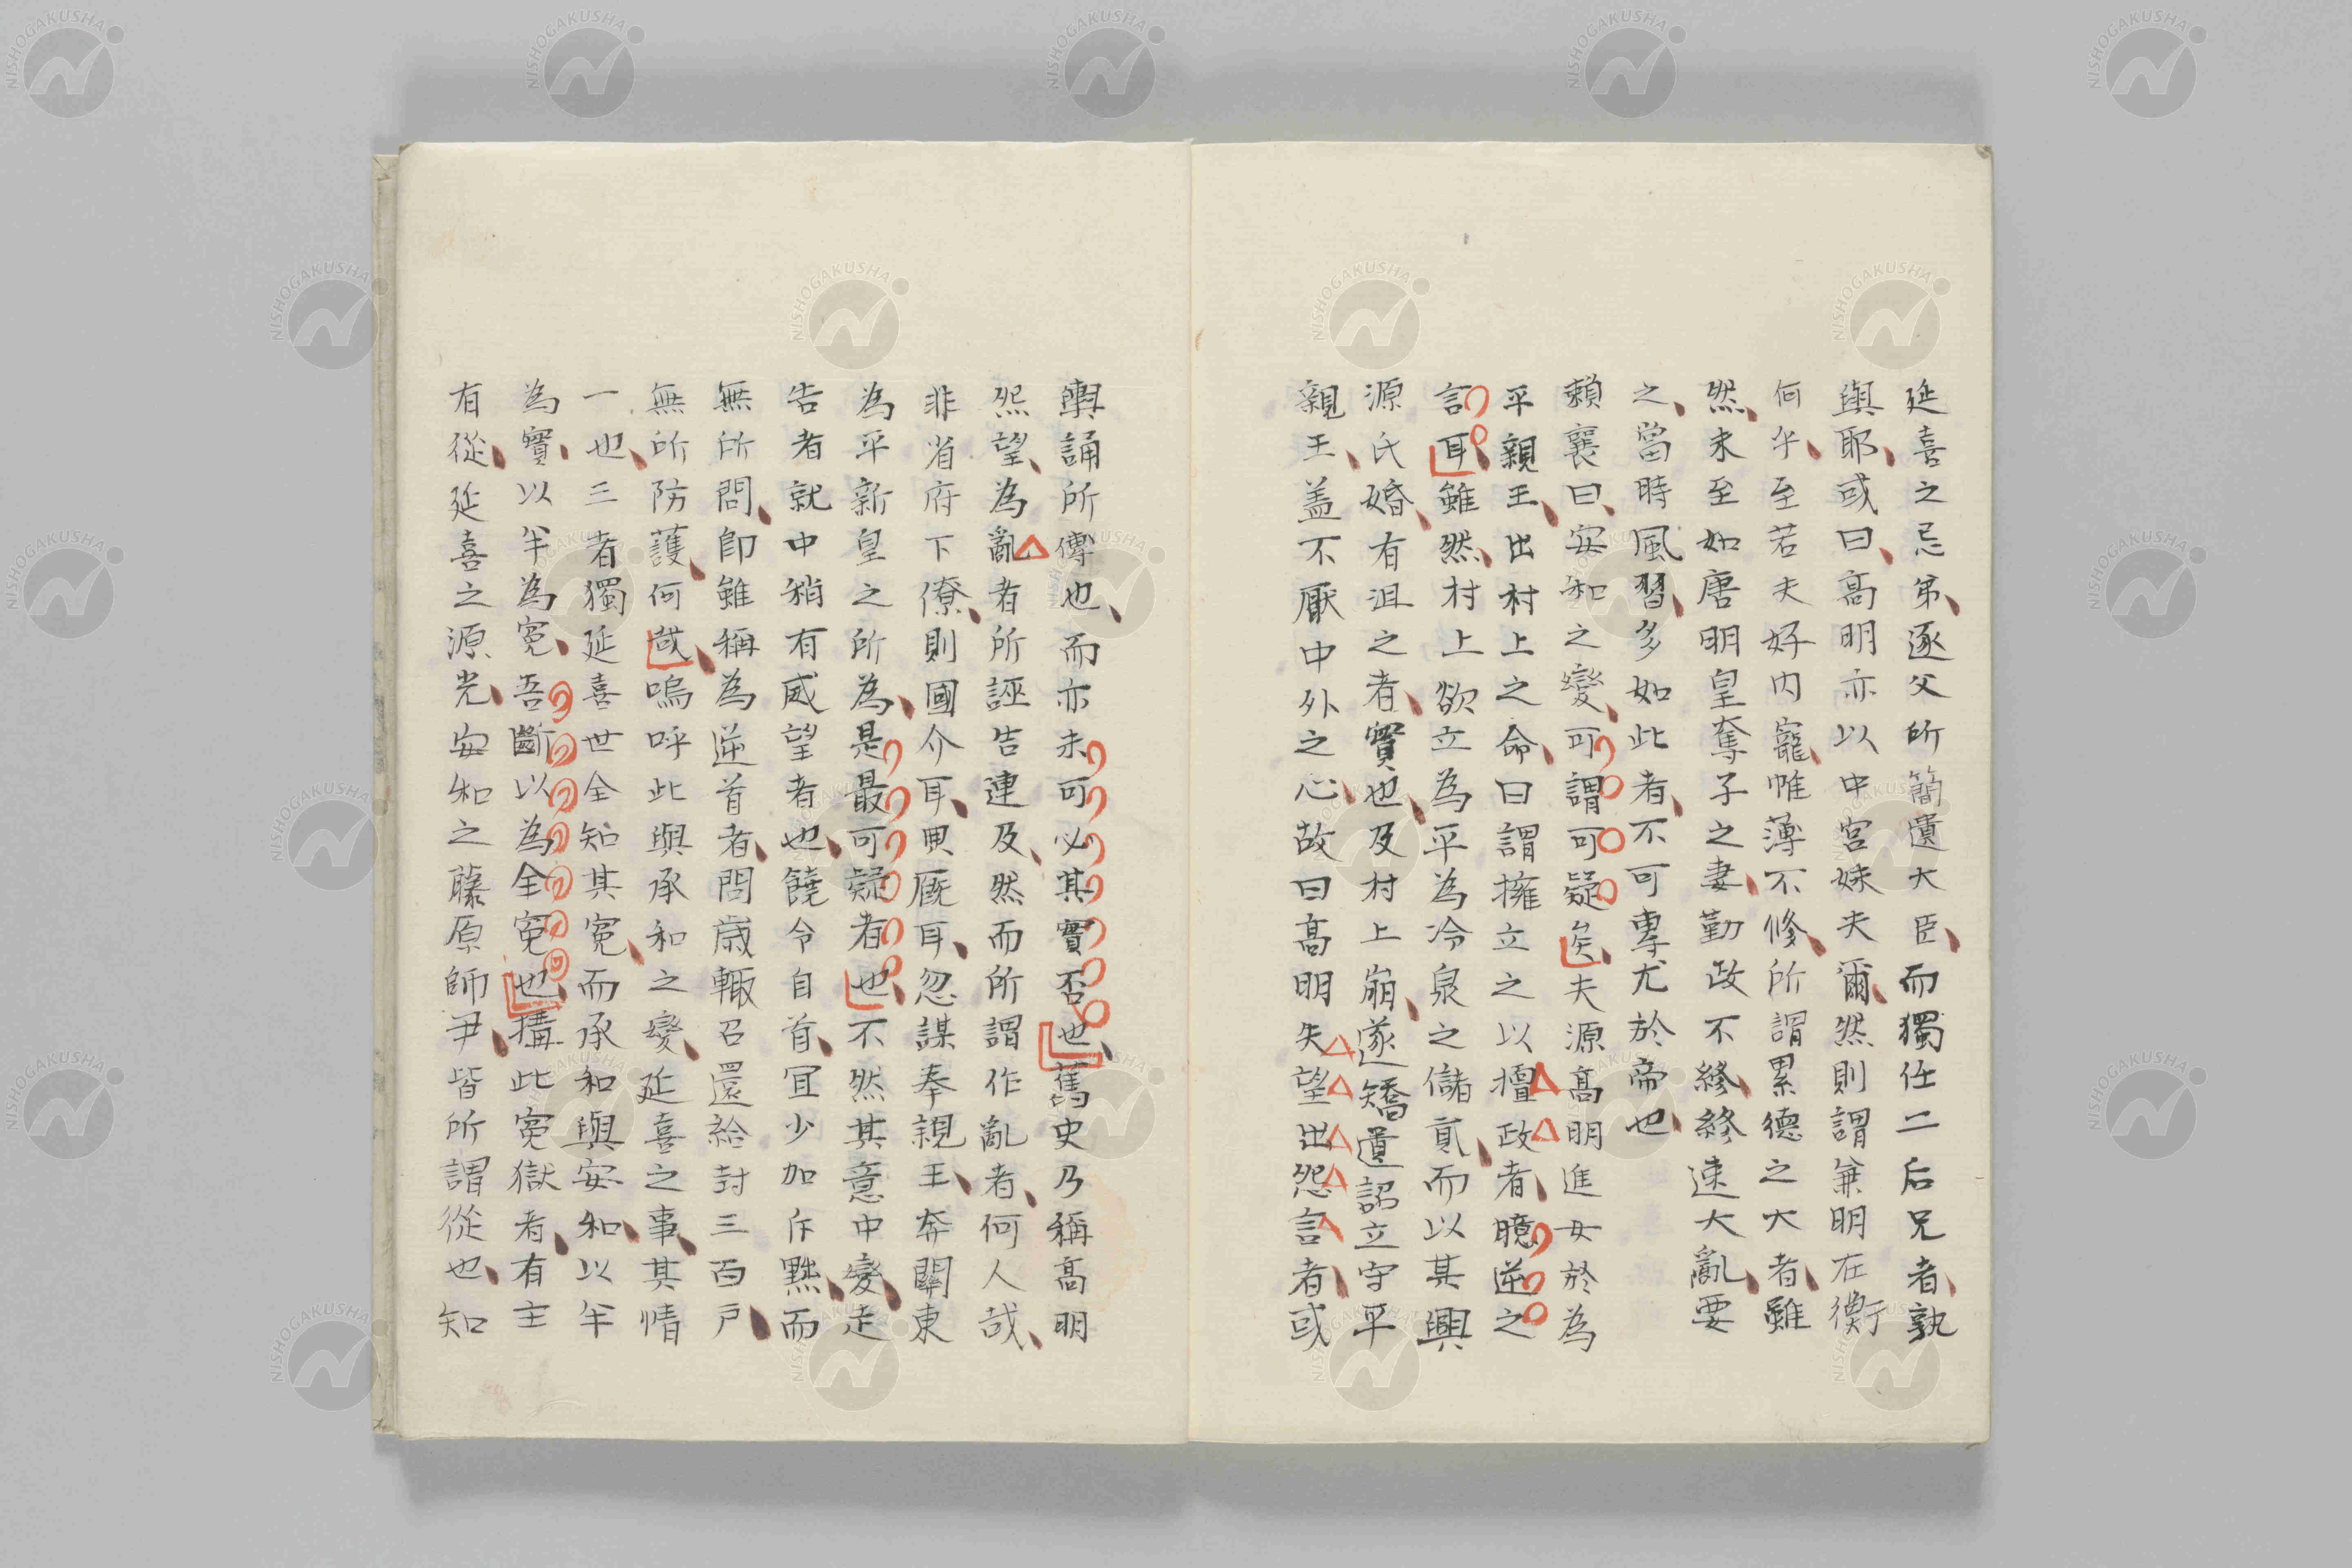 延喜之忌弟逐父所簡遺大臣而獨任二后兄者孰
與耶或曰高明亦以中宮妹夫爾然則謂兼明在衡
何乎至若夫好内寵帷薄不修所謂累德之大者雖
然未至如唐明皇奪子之妻勤政不終終速大亂要
之當時風習多如此者不可專尤於帝也
賴襄曰安和之變可謂可疑矣夫源高明進女於為
平親王出村上之命曰謂擁立之以擅政者臆逆之
言耳雖然村上欲立為平為冷泉之儲貳而以其興
源氏婚有沮之者實也及村上崩遂矯遺詔立守平
親王盖不厭中外之心故曰高明失望出怨言者或
輿誦所傳也而亦未可必其實否也舊史乃稱高明
怨望為亂者所誣告連及然而所謂作亂者何人哉
非省府下僚則國介耳輿廐耳忽謀奉親王奔關東
為平新皇之所為是最可疑者也不然其意中變走
告者就中稍有威望者也饒令自首宜少加斥黜而
無所問卽雖稱為逆首者問歲輒召還給封三百戸
無所防護何哉嗚呼此與承和之變延喜之事其情
一也三者獨延喜世全知其冤而承和與安和以半
為實以半為冤吾斷以為全冤也搆此冤獄者有主
有從延喜之源光安和之藤原師尹皆所謂從也知
NISHOGAKUSHA